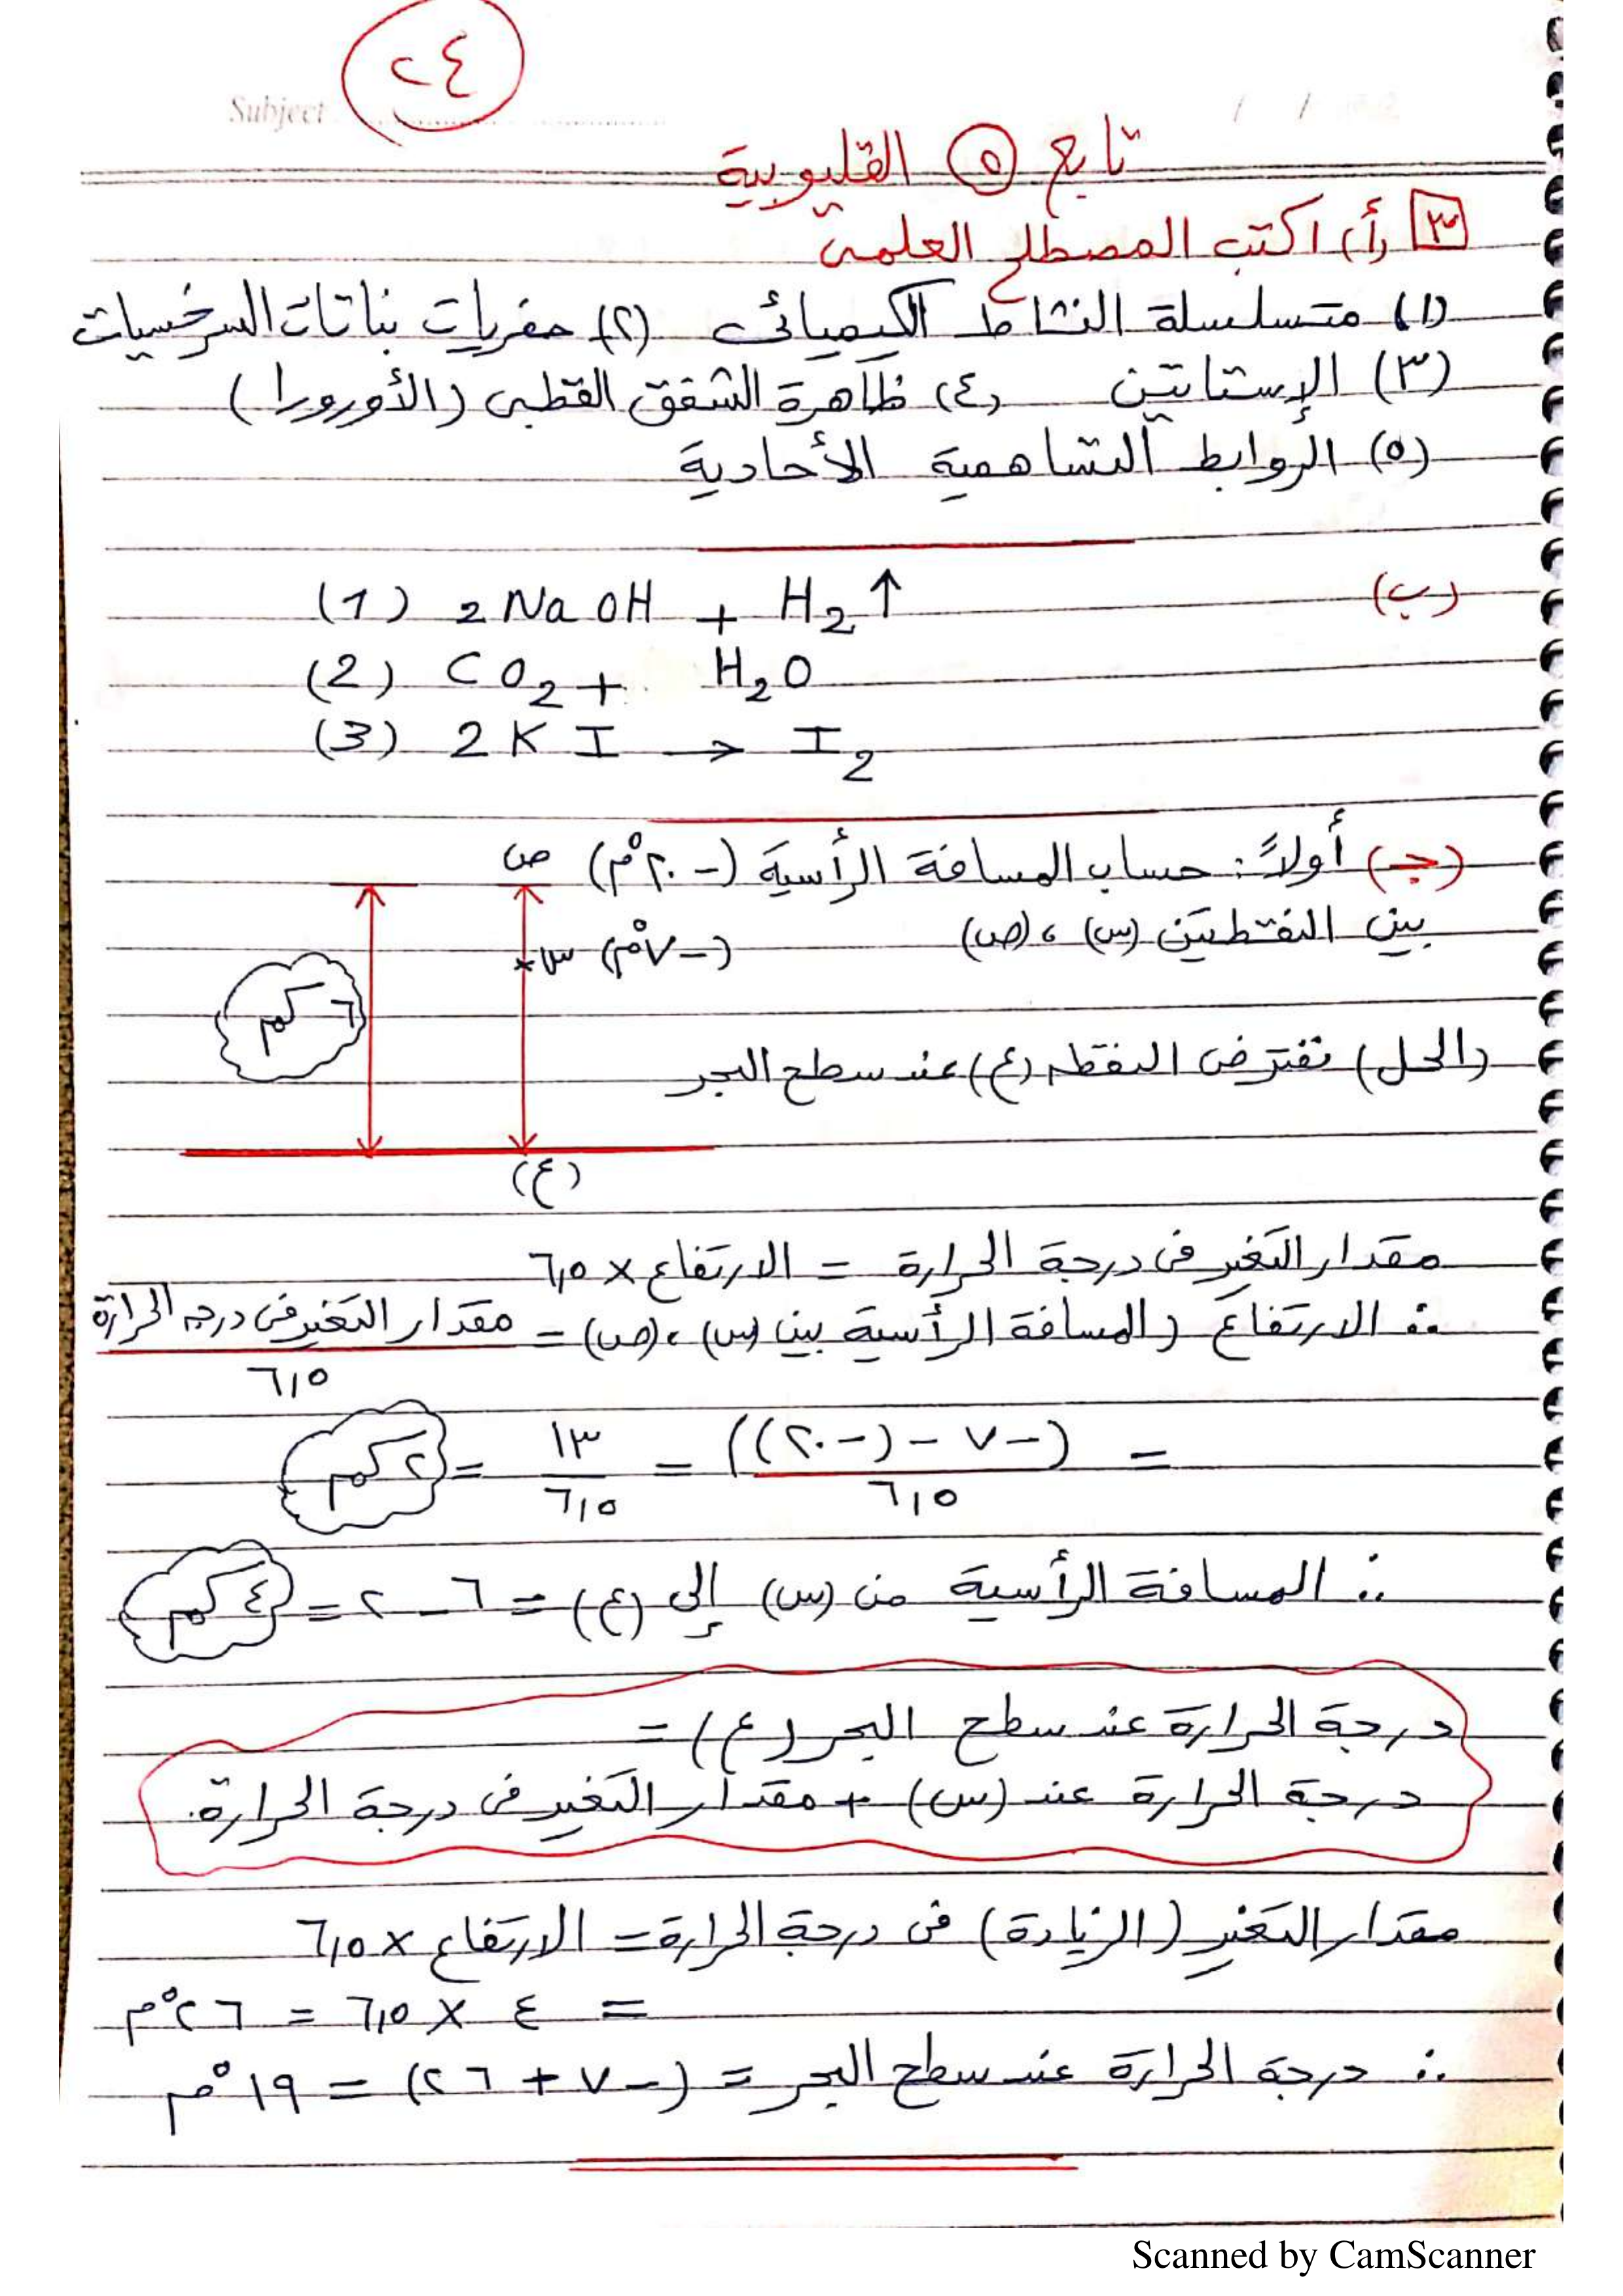 ٢٤
Subject
تابع ٥ القليوبية
٣ (أ) اكتب المصطلح العلمى
(١) متسلسلة النشاط الكيميائى (٢) حفريات نباتات السرخسيات
(٣) الإستاتين (٤) ظاهرة الشفق القطبى (الأورورا)
(٥) الروابط التساهمية الأحادية
(ب) (1) 2NaOH + H2↑
(2) CO2 + H2O
(3) 2KI → I2
(جـ) أولاً: حساب المسافة الرأسية (-٢٠°م) ص
بين النقطتين (س)، (ص) (-٧°م) س
٦ كم
(الحل) نفترض النقطه (ع) عند سطح البحر
(ع)
مقدار التغير فى درجة الحرارة = الارتفاع × ٦,٥
∴ الارتفاع (المسافة الرأسية بين (س)، (ص) = مقدار التغير فى درجه الحرارة
٦,٥
= (-٧ - (-٢٠)) = ١٣ = ٢ كم
٦,٥ ٦,٥
∴ المسافة الرأسية من (س) إلى (ع) = ٦ - ٢ = ٤ كم
درجة الحرارة عند سطح البحر (ع) =
درجة الحرارة عند (س) + مقدار التغير فى درجة الحرارة.
مقدار التغير (الزيادة) فى درجة الحرارة = الارتفاع × ٦,٥
= ٤ × ٦,٥ = ٢٦°م
∴ درجة الحرارة عند سطح البحر = (-٧ + ٢٦) = ١٩°م
Scanned by CamScanner